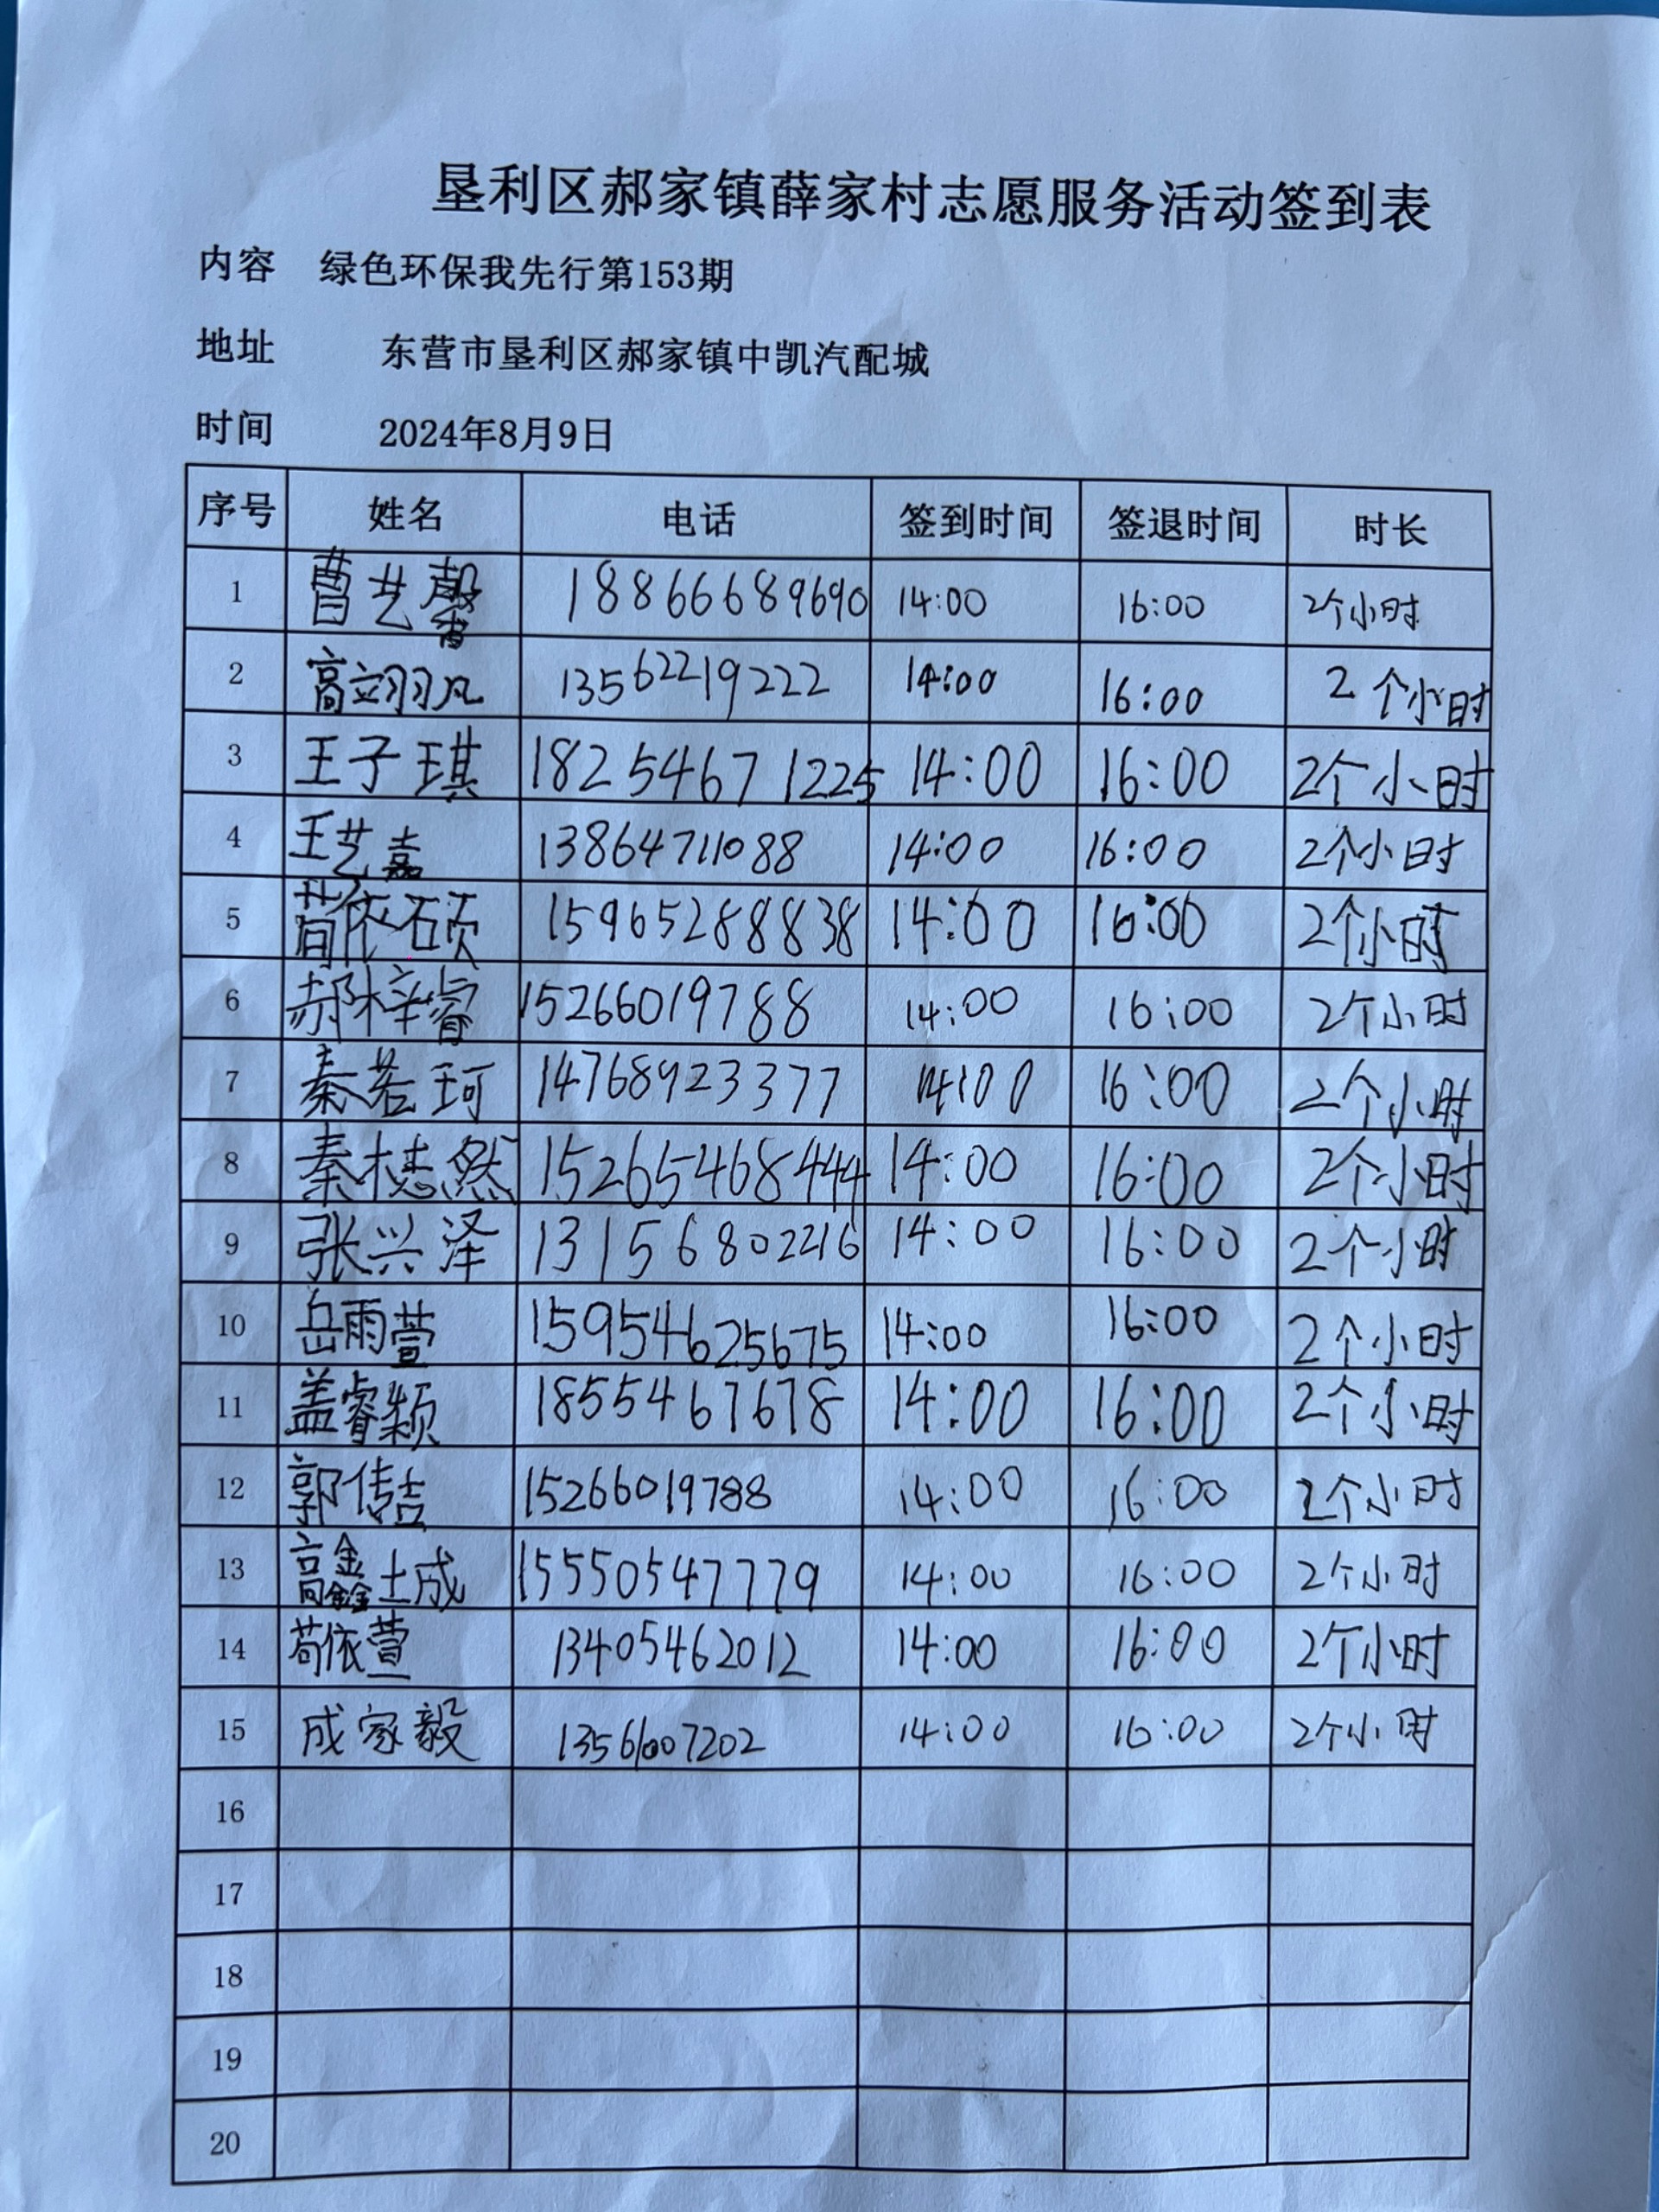 垦利区郝家镇薛家村志愿服务活动签到表
内容 绿色环保我先行第153期
地址 东营市垦利区郝家镇中凯汽配城
时间 2024年8月9日
序号 姓名 电话 签到时间 签退时间 时长
1 曹艺馨 18866689690 14:00 16:00 2个小时
2 高翊凡 13562219222 14:00 16:00 2个小时
3 王子琪 18254671225 14:00 16:00 2个小时
4 王艺嘉 13864711088 14:00 16:00 2个小时
5 依硕 15965288838 14:00 16:00 2个小时
6 郝梓睿 15266019788 14:00 16:00 2个小时
7 秦若珂 14768923377 14:00 16:00 2个小时
8 秦然 15265468444 14:00 16:00 2个小时
9 张兴泽 13156802216 14:00 16:00 2个小时
10 岳雨萱 159954625675 14:00 16:00 2个小时
11 盖睿颖 18554671678 14:00 16:00 2个小时
12 郭倩 15266019788 14:00 16:00 2个小时
13 高鑫城 15550547779 14:00 16:00 2个小时
14 苟依萱 13405462012 14:00 16:00 2个小时
15 成家毅 13561007202 14:00 16:00 2个小时
16
17
18
19
20